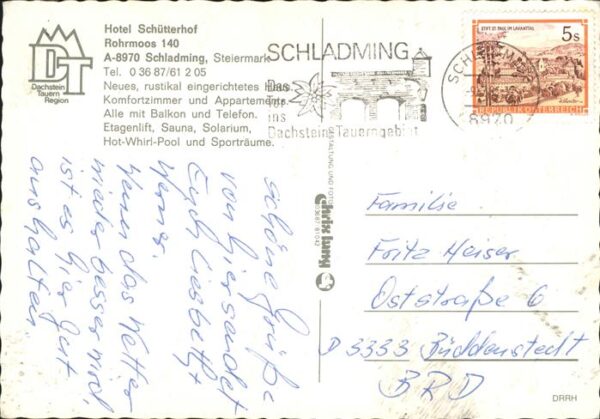 Hotel Schütterhof
Rohrmoos 140
A-8970 Schladming, Steiermark
Tel. 0 36 87/61 2 05
Neues, rustikal eingerichtetes Haus
Komfortzimmer und Appartements
Alle mit Balkon und Telefon.
Etagenlift, Sauna, Solarium,
Hot-Whirl-Pool und Sporträume.
DT
Dachstein
Tauern
Region
SCHLADMING
Das
ins
Dachstein-Tauerngebiet
8970
STIFT ST. PAUL IM LAVANTTAL
5s
REPUBLIK ÖSTERREICH
schöne Grüße
von hier sendet
Euch Liesbeth
Werner.
Wenn das Wetter
wieder besser wird,
ist es hier gut
aushalten.
GESTALTUNG UND FOTO
03687 81042
Familie
Fritz Heiser
Oststraße 6
D 3333 Büddenstedt
BRD
DRRH